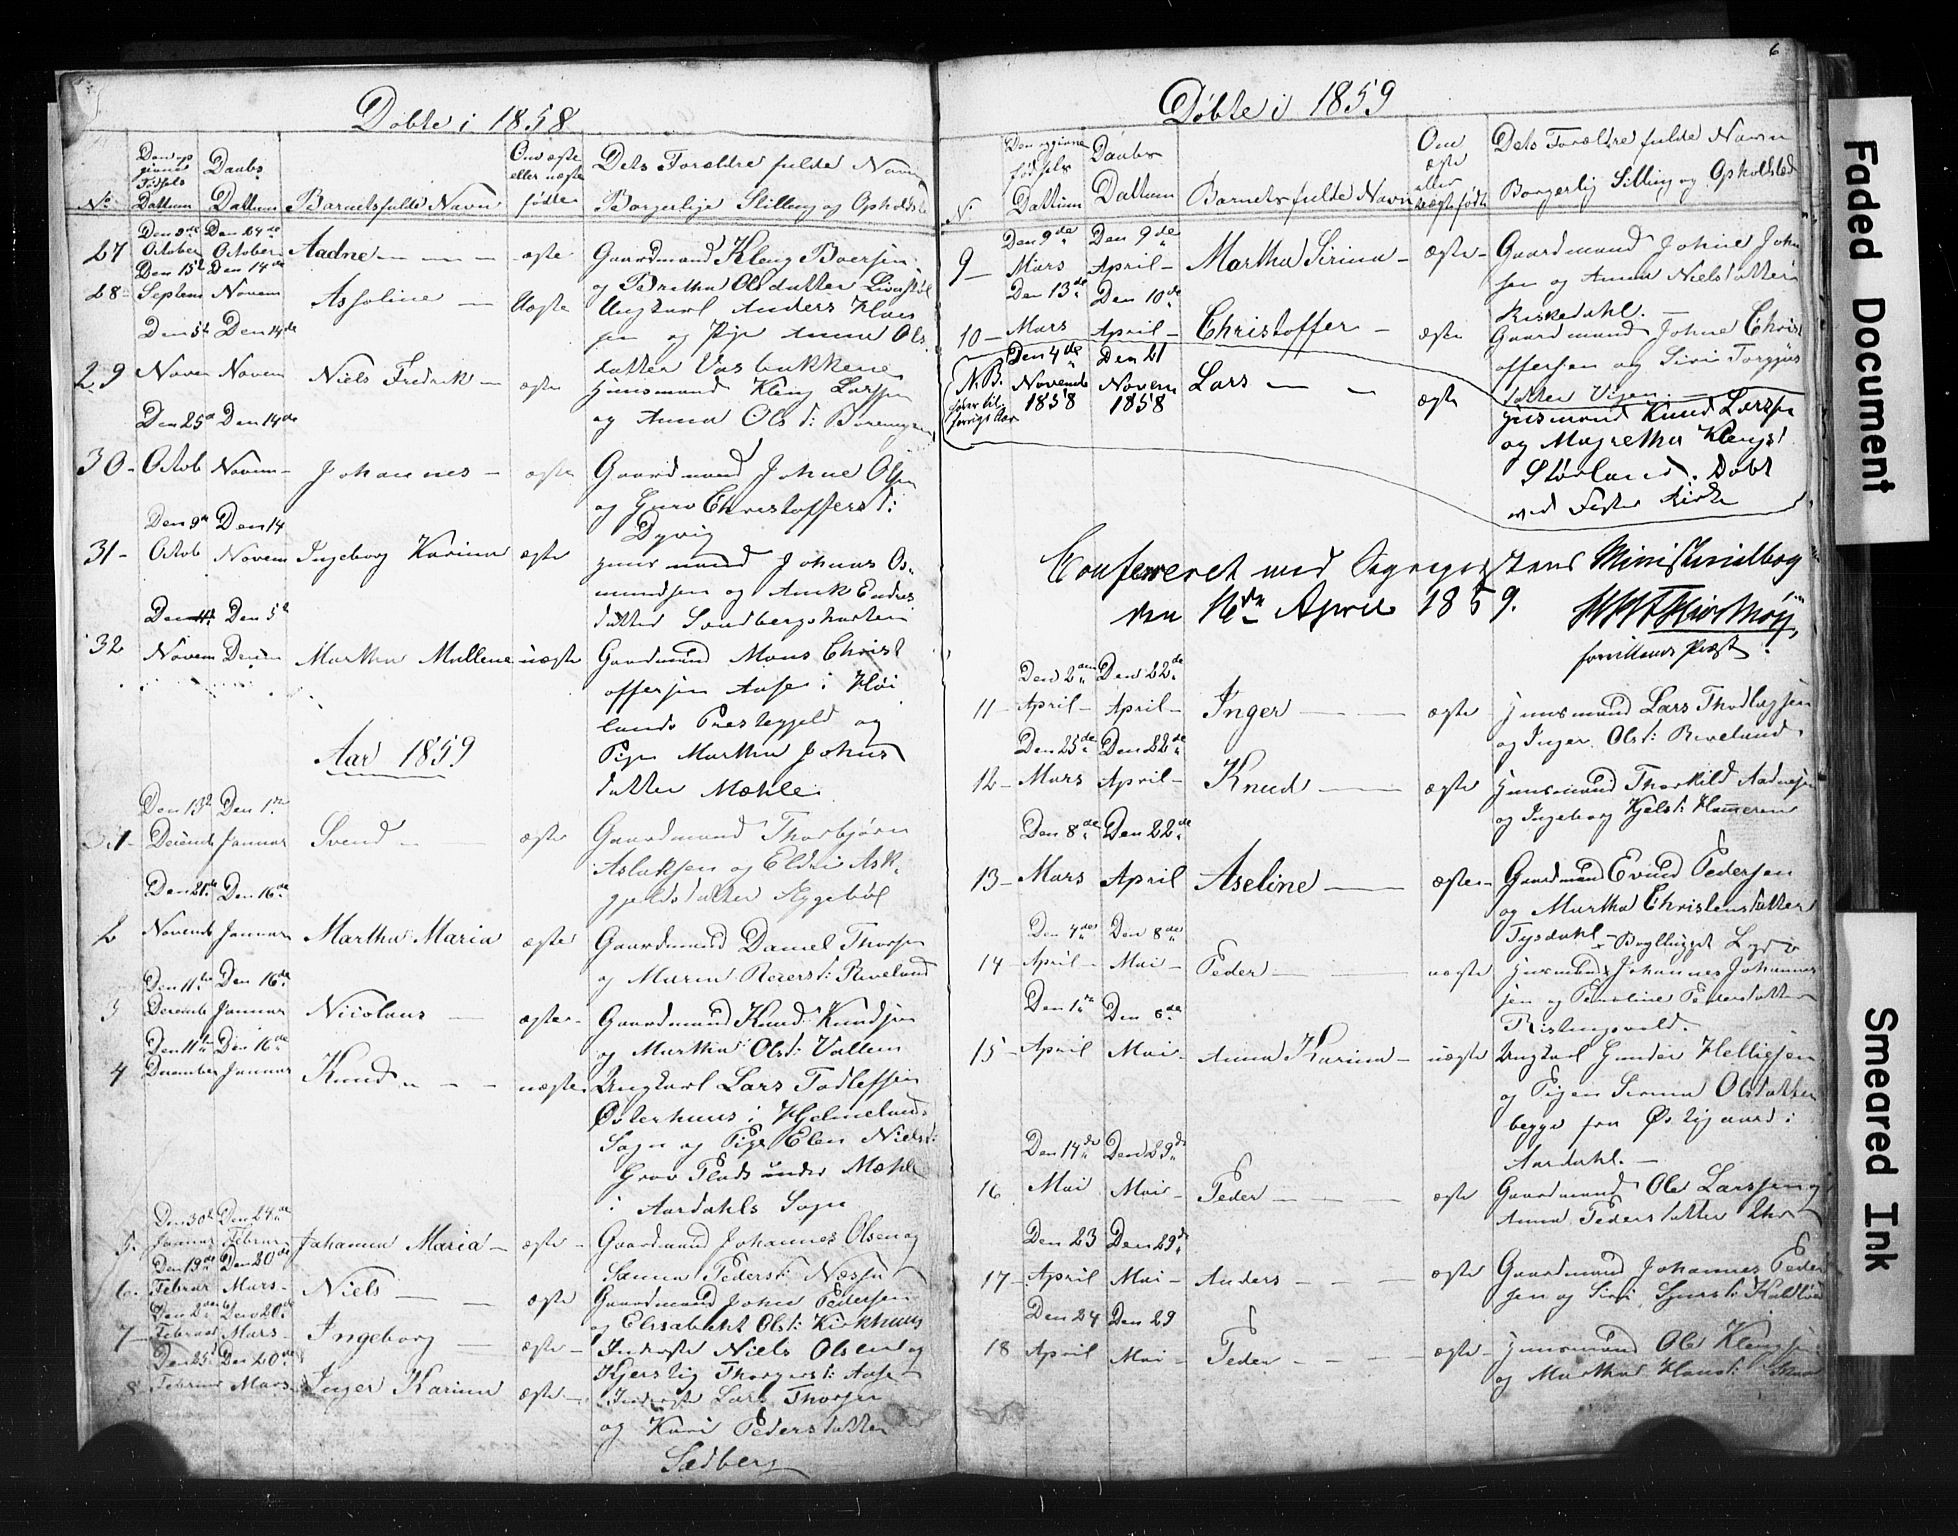 Døbte i 1858
No
Den op
givne
Fødsels
Dattum
Daabs
Dattum
Barnets fulde Navn
Om ægte
eller uægte
født
Dets Forældre fulde Navn
Borgerlige Stilling og Opholdst
27
Den 9de October
Den 24de October
Aadne
ægte
Gaardmand Kleng Boersen
og Beretha Olsdatter
28
Den 15d Septem
Den 14de Novem
Assoline
Uægte
Ungkarl Anders Klaus
sen og Pige Anna Ols
datter Vasbakkene
29
Den 5t Novem
Den 14de Novem
Niels Fredrik
ægte
Huusmand Kleng Larssen
og Anna Olsd:
30
Den 25d Octob
Den 14de Novem
Johannes
ægte
Gaardmand Johne Olsen
og Guro Christoffersd:
Dyvig
31
Den 9n Octob
Den 14 Novem
Ingeborg Karina
ægte
Huusmand Johanes Os-
mundsen og Ane Endres
datter Sandbergshagen
32
Novem
Den 5t Decem
Martha Mallene
uægte
Gaardmand Mons Christ
offersen Aase i Høi
lands Prestegjeld og
Pige Martha Johns
datter Mæhle
Aar 1859
1
Den 13d Decemb
Den 1te Januar
Svend
ægte
Gaardmand Thorbjørn
Aslaksen og Eldri Ask-
gjeldsdatter Byggebøl
2
Den 21de Novemb
Den 16de Januar
Martha Maria
ægte
Gaardmand Daniel Thorsen
og Maren Reiersd: Riveland
3
Den 11te Decemb
Den 16de Januar
Nicolaus
ægte
Gaardmand Knud Knudsen
og Martha Olsd: Vallem
4
Den 11te December
Den 16de Januar
Knud
uægte
Ungkarl Lars Todlefsen
Østerhuus i Hjelmelands
Sogn og Pige Elen Nielsd:
Grov Plads under Mæhle
i Aardahls Sogn
5
Den 30t Januar
Den 24de Februar
Johanna Maria
ægte
Gaardmand Johannes Olsen og
Sanna Pedersd: Næssa
6
Den 19de Februar
Den 20de Mars
Niels
ægte
Gaardmand John Pedersen
og Elisabeth Olsd: Kirkhuus
7
Den 2den Februar
Den 20de Mars
Ingeborg
ægte
Inderste Niels Olsen og
Kjersti Thorgersd: Aase
8
Den 25d Februar
Den 20de Mars
Inger Karina
ægte
Inderste Lars Thorsen
og Kari Pedersdatter
Sedberg
6
Døbte i 1859
N
Den opgivne
fødsels
Dattum
Daabs
Dattum
Barnets fulde Navn
Om
ægte
eller
uægte født
Dets Forældre fulde Navn
Borgerlig Stilling og Opholdsted
9
Den 9de Mars
Den 9de April
Martha Sirina
ægte
Gaardmand Johne John
sen og Anna Nielsdatter
Riskedahl.
10
Den 13de Mars
Den 10de April
Christoffer
ægte
Gaardmand Johne Christ
offersen og Siri Torgjus
datter Vigen
N.B.
hører til
forrigt Aar
Den 4de Novemb 1858
Den 21 Novem 1858
Lars
ægte
Huusmand Knud Larssen
og Magretha Klengsd
Størland. Døbt
ved Fister Kirke
Confereret med Sognepræstens Ministerialbog
den 16de April 1859.
forrettende Præst.
11
Den 2den April
Den 22de April
Inger
ægte
Huusmand Lars Thodlagsen
og Inger Olsd: Riveland
12
Den 25de Mars
Den 22de April
Knud
ægte
Huusmand Thorkild Aadnesen
og Ingeborg Kjelsd: Hameren
13
Den 8de Mars
Den 22de April
Aseline
ægte
Gaardmand Evind Pedersen
og Martha Christensdatter
Tysdahl
14
Den 4de April
Den 8de Mai
Peder
uægte
Huusmand Johannes Johannes
sen og Penoline Pedersdatter
15
Den 1te April
Den 8de Mai
Anna Karina
uægte
Ungkarl Gunder Helliesen
og Pigen Serina Olsdatter
begge fra Østigaard i
Aardahl.
16
Den 14de Mai
Den 29de Mai
Peder
ægte
Gaardmand Ole Larssen og
Anna Pedersdatter
17
Den 23 April
Den 29de Mai
Anders
ægte
Gaardmand Johannes Peder
sen og Siri Sjursd:
18
Den 24 April
Den 29 Mai
Peder
ægte
Huusmand Ole Klengsen
og Martha Hansd:
Faded Document
Smeared Ink